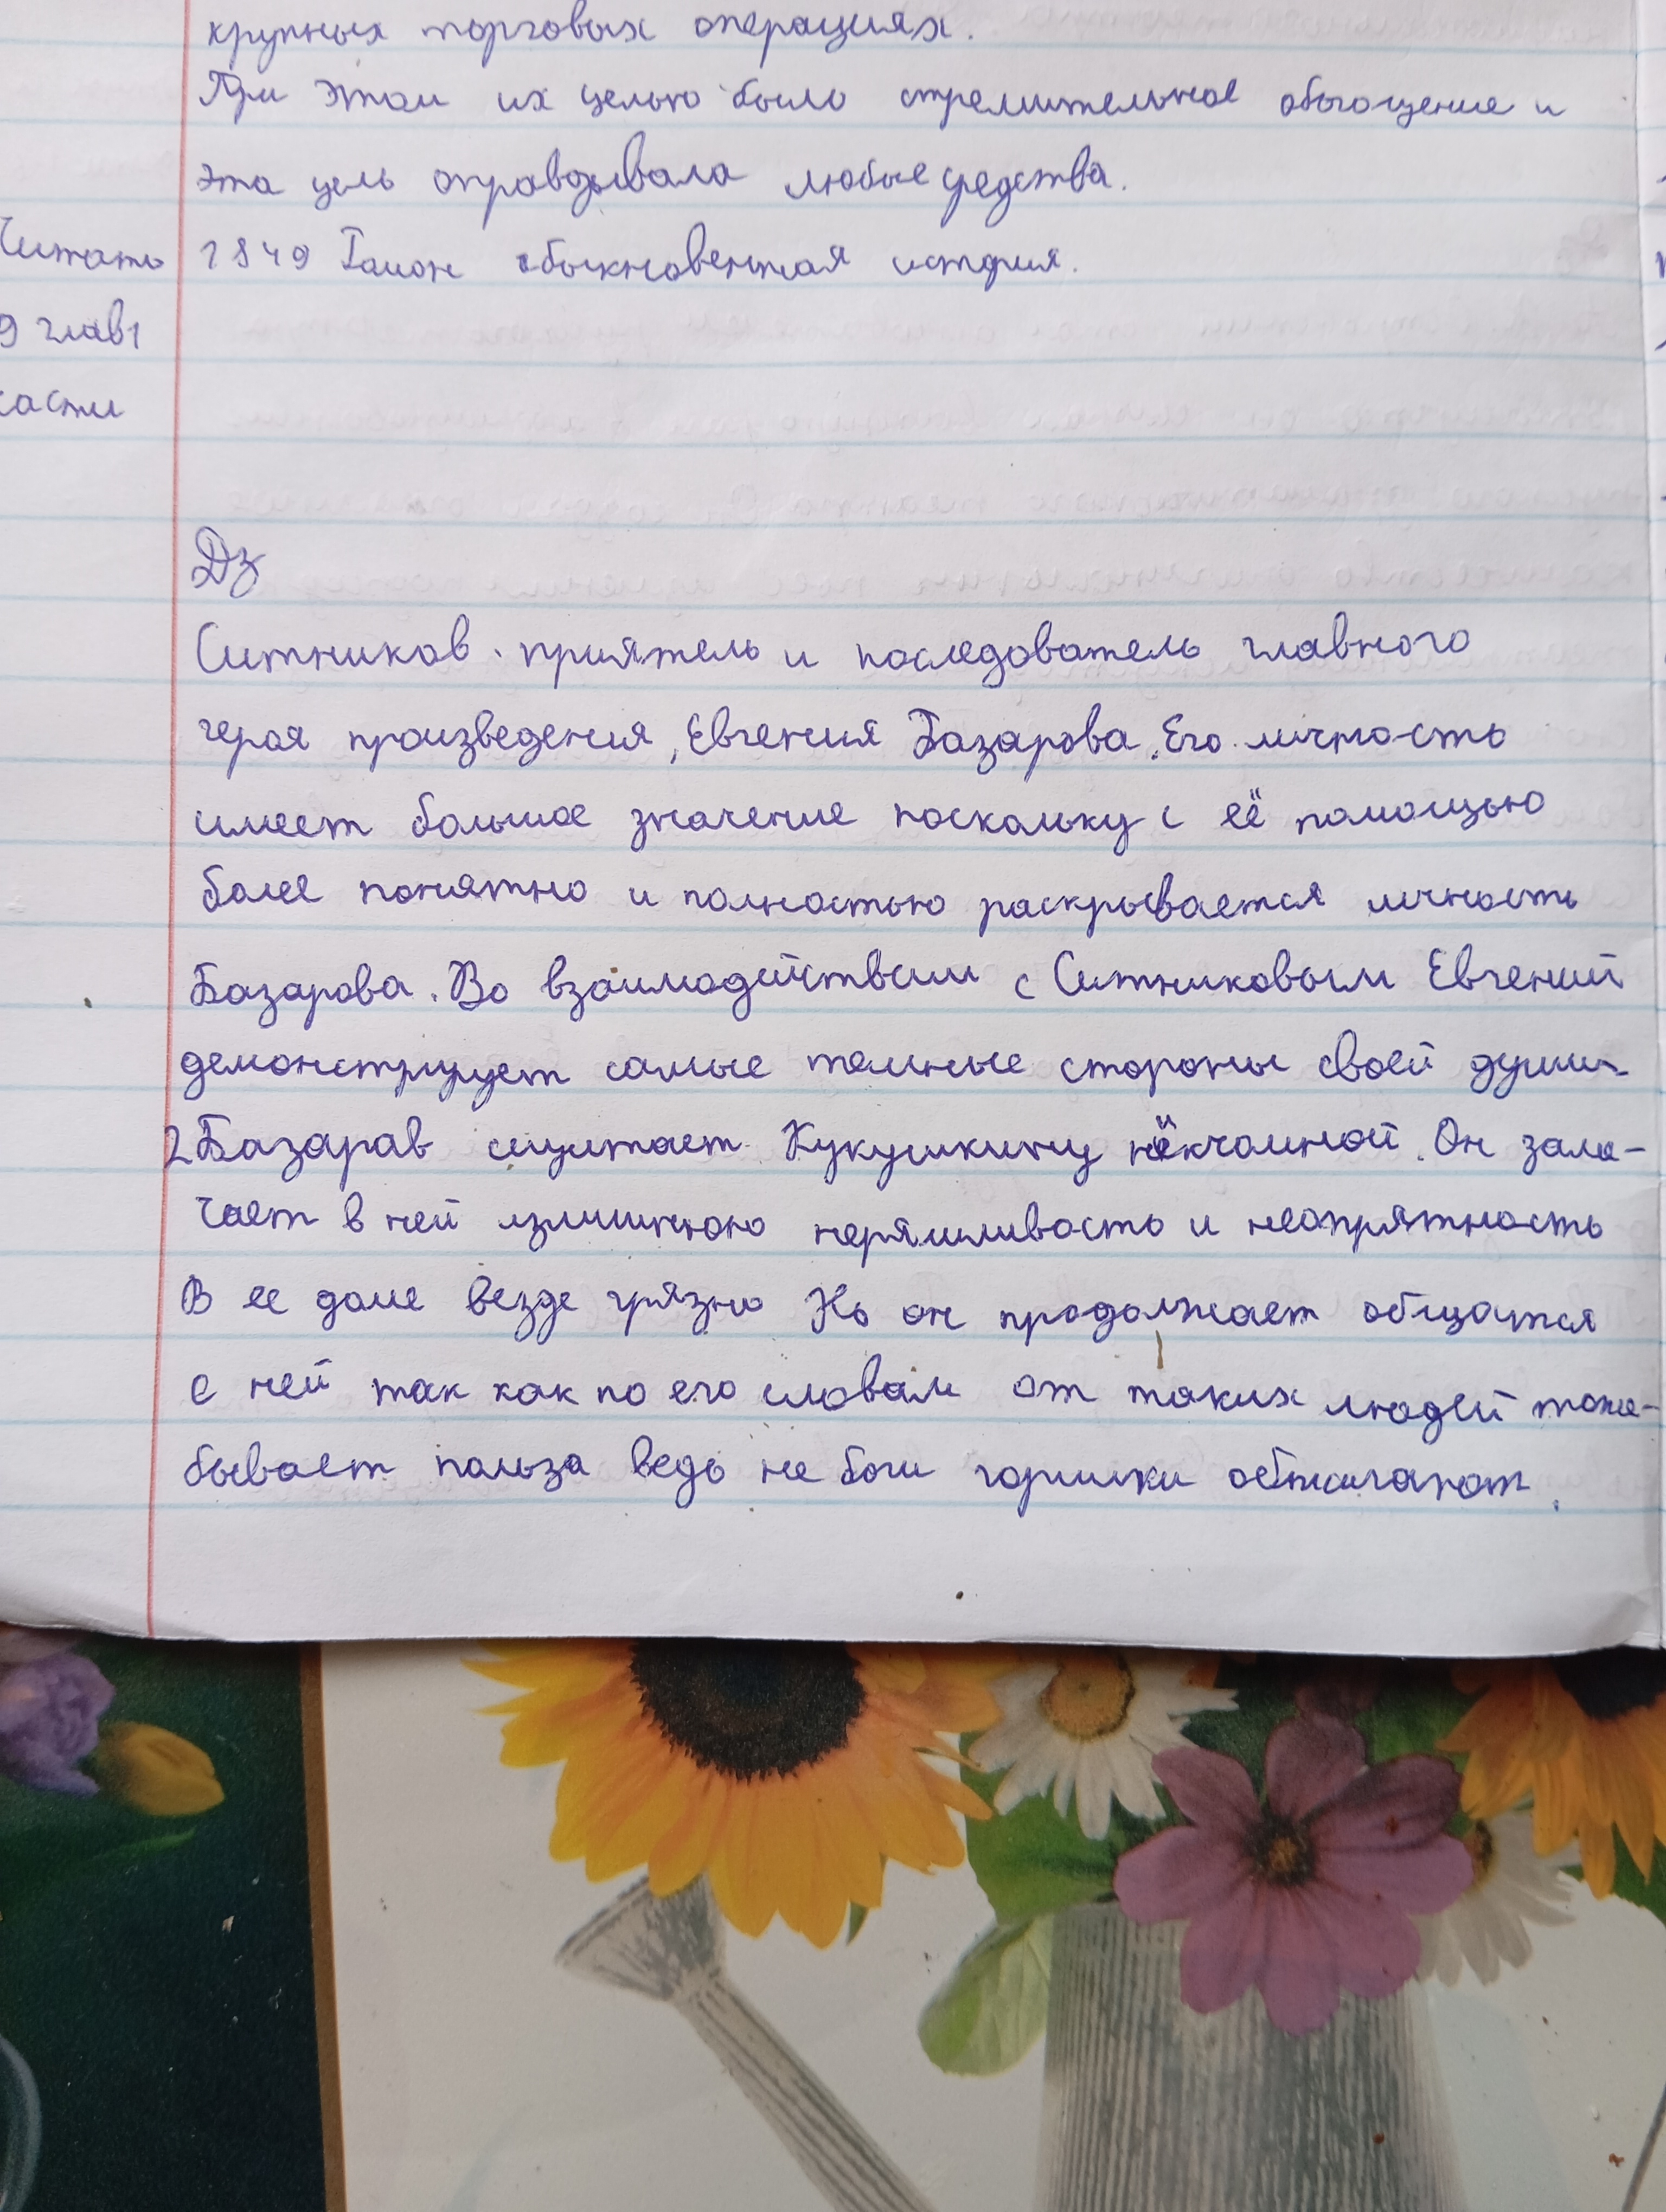 крупных торговых операциях.
При этом их целью было стремительное обогощение и
эта цель оправдывала любые средства.
Читать
1849 Гамон обыкновенная история.
9 глав1
части
Дз
Ситников - приятель и последователь главного
героя произведения, Евгения Базарова. Его личность
имеет большое значение поскольку с её помощью
более понятно и полностью раскрывается личность
Базарова. Во взаимодействии с Ситниковым Евгений
демонстрирует самые темные стороны своей души.
2 Базарав считает Кукушкину никчомной. Он заме-
чает в ней излишнюю неряшливость и неопрятность
В ее доме везде грязно Но он продолжает общатся
с ней так как по его словам от таких людей тоже
бывает польза ведь не боги горшки обжигают.